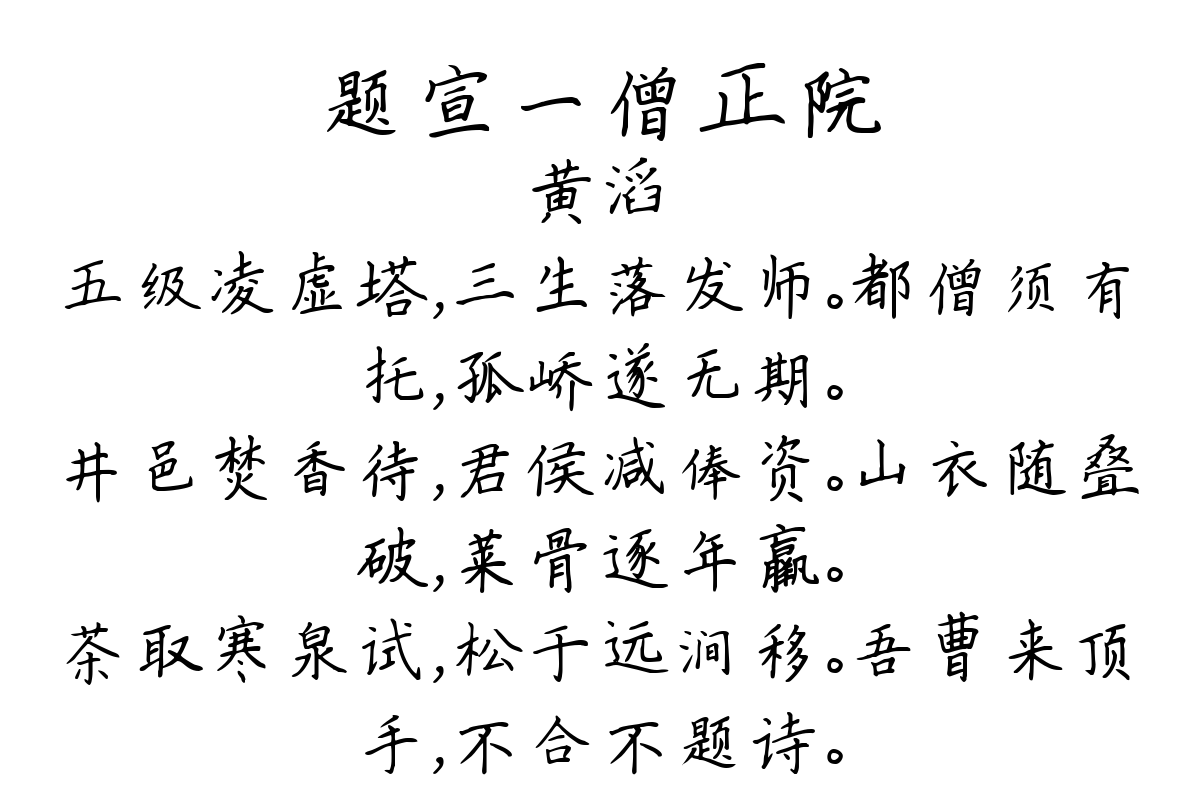 题宣一僧正院
黄滔
五级凌虚塔,三生落发师。都僧须有
托,孤峤遂无期。
井邑焚香待,君侯减俸资。山衣随叠
破,菜骨逐年羸。
茶取寒泉试,松于远涧移。吾曹来顶
手,不合不题诗。